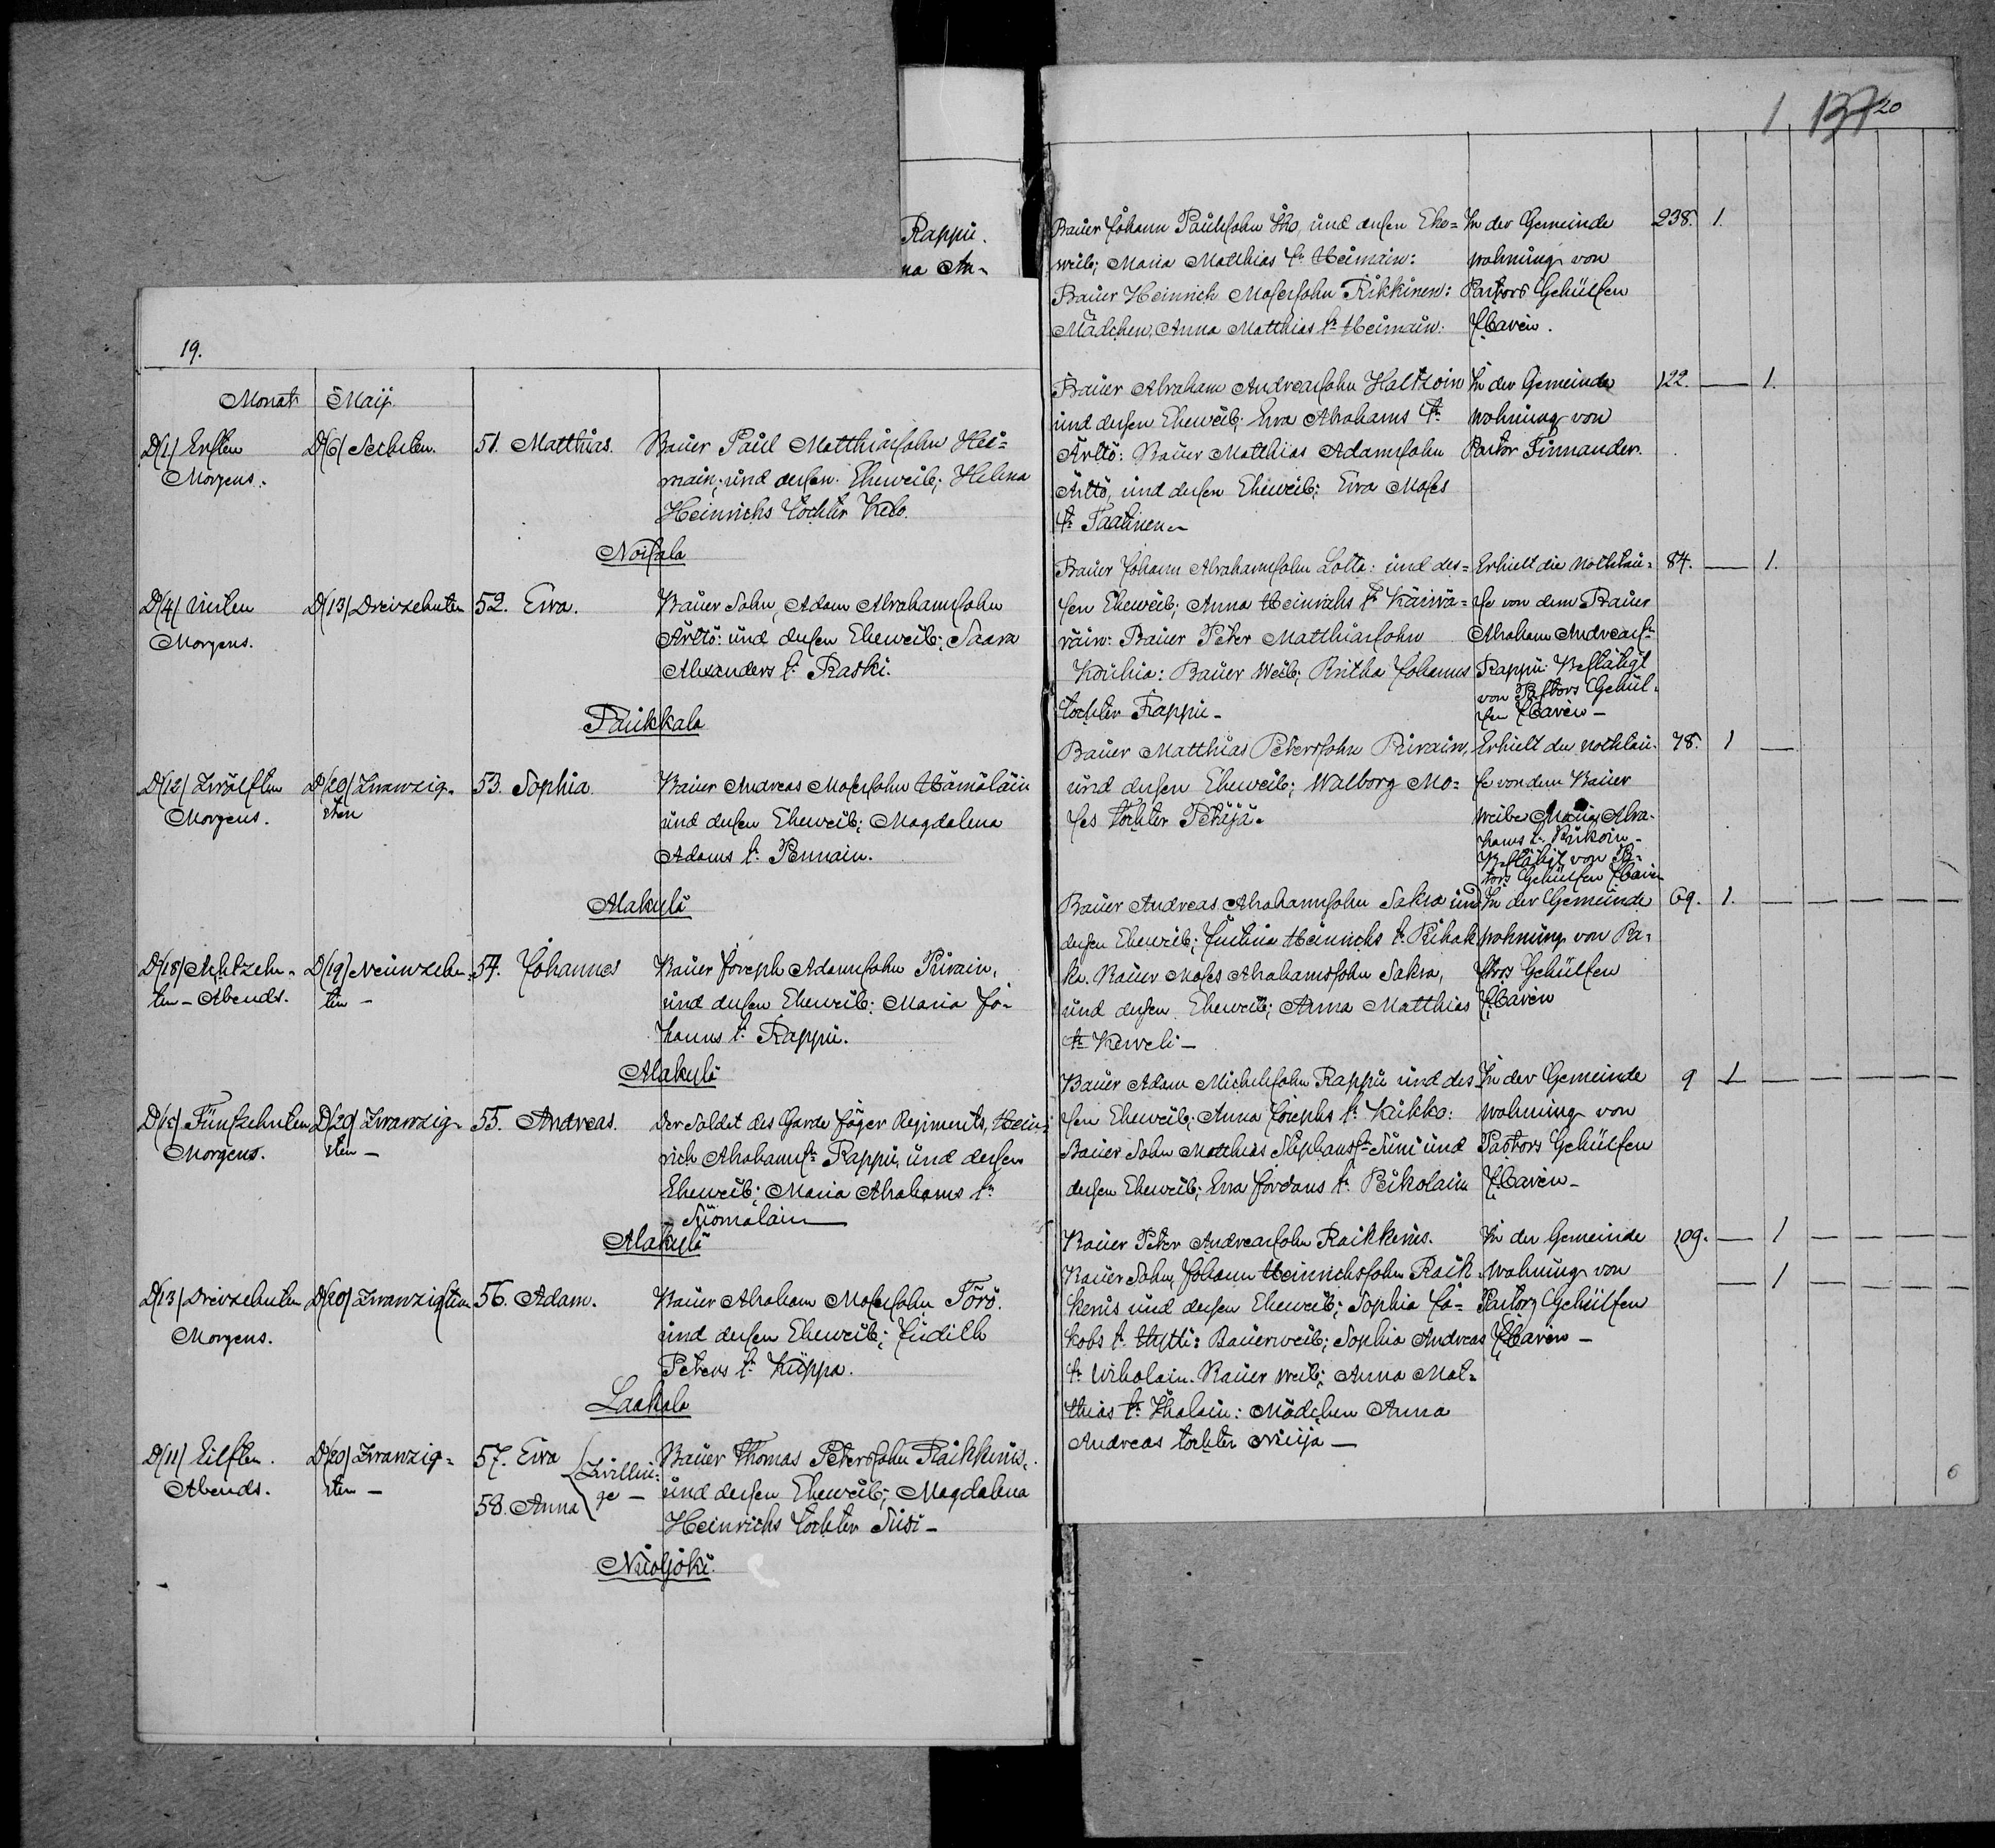 1 137 20
Rappu.
na An-
19.
Monat Maij.
D/1/ Ersten
Morgens.
D/6/ Sechsten.
51. Matthias.
Bauer Paul Matthiassohn Hei=
main; und dessen Eheweib; Helena
Heinrichs tochter Kelo.
Noisala
D/4/ Vierten
Morgens.
D/13/ Dreizehnten
52. Ewa.
Bauer Sohn, Adam Abrahamsohn
Ärttö: und dessen Eheweib; Saara
Alexanders t: Raski.
Paukkala
D/12/ Zwölften
Morgens.
D/20/ Zwanzig-
sten
53. Sophia.
Bauer Andreas Mosessohn Hämäläin
und dessen Eheweib; Magdalena
Adams t: Pennain.
Alakylä
D/18/ Achtzehn-
ten - Abends.
D/19/ Neunzehn-
ten -
54. Johannes
Bauer Joseph Adamsohn Purain,
und dessen Eheweib; Maria Jo-
hanns t: Rappu.
Alakylä
D/15/ Fünfzehnten
Morgens.
D/20/ Zwanzig-
sten -
55. Andreas.
Der Soldat des Garde Jäger Regiments, Hein-
rich Abrahams: Rappu, und dessen
Eheweib; Maria Abrahams t:
Suomalain
Alakylä
D/13/ Dreizehnten
Morgens.
D/20/ Zwanzigsten
56. Adam.
Bauer Abraham Mosessohn Törö.
und dessen Eheweib; Judith
Peters t: Kuppa.
Laakala
D/11/ Eilften.
Abends.
D/20/ Zwanzig=
sten -
57. Ewa
58. Anna
Zwillin-
ge -
Bauer Thomas Peterssohn Raikkenis,
und dessen Eheweib; Magdalena
Heinrichs tochter Susi -
Nuoljoki.
Bauer Johann Paulssohn Iho, und dessen Ehe=
weib; Maria Matthias t: Heimain:
Bauer Heinrich Mosessohn Rikkinen:
Mädchen, Anna Matthias t: Heimain.
In der Gemeinde
wohnung von
Pastors Gehülfen
Havén.
238. 1.
Bauer Abraham Andreassohn Haltzoin
und dessen Eheweib; Ewa Abrahams t:
Ärttö: Bauer Matthias Adamsohn
Ärttö, und dessen Eheweib; Ewa Moses
t: Taatinen.
In der Gemeinde
wohnung von
Pastor Finnander.
122. — 1.
Bauer Johann Abrahamsohn Lotta: und des=
sen Eheweib; Anna Heinrichs t: Käiwä=
räin: Bauer Peter Matthiassohn
Kouhia: Bauer Weib; Britha Johanns
tochter Rappu -
Erhielt die nothtau=
fe von dem Bauer
Abraham Andreas:
Rappu. Bestätigt
von Pastors Gehül-
fen Havén -
84. — 1.
Bauer Matthias Peterssohn Purain,
und dessen Eheweib; Walborg Mo=
ses tochter Petäjä.
Erhielt die nothtau-
fe von dem Bauer
weibe Maria Abra-
hams t:
Bestätigt von Pas-
tors Gehülfen Havén
78. 1 —
Bauer Andreas Abrahamsohn Sakra und
dessen Eheweib; Justina Heinrichs t: Rihak
ka. Bauer Moses Abrahamssohn Sakra,
und dessen Eheweib; Anna Matthias
t: Kerweli -
In der Gemeinde
wohnung von Pa-
stors Gehülfen
Havén
69. 1. — — — — —
Bauer Adam Michelssohn Rappu und des
sen Eheweib; Anna Josephs t: Kukko:
Bauer Sohn Matthias Stephans: Suni und
dessen Eheweib; Ewa Jordans t: Peikolain
In der Gemeinde
wohnung von
Pastors Gehülfen
Havén -
9 1 — — — — —
Bauer Peter Andreassohn Raikkenis.
Bauer Sohn, Johann Heinrichssohn Raik
kenis und dessen Eheweib; Sophia Ja-
kobs t: Hytti: Bauerweib; Sophia Andreas
t: Wiholain. Bauer weib; Anna Mat=
thias t: Ihalain: Mädchen Anna
Andreas tochter Nuija —
In der Gemeinde
wohnung von
Pastors Gehülfen
Havén -
109. — 1 — — — —
— 1 — — — —
6